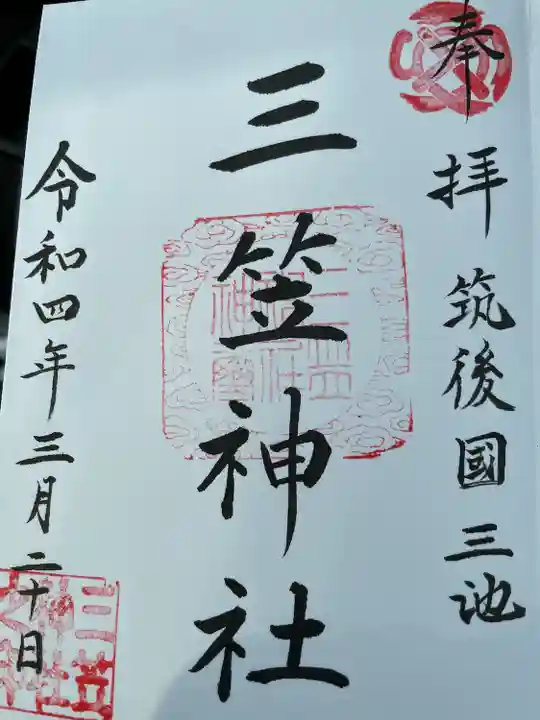 奉拝 筑後國三池
三笠神社
令和四年三月二十日